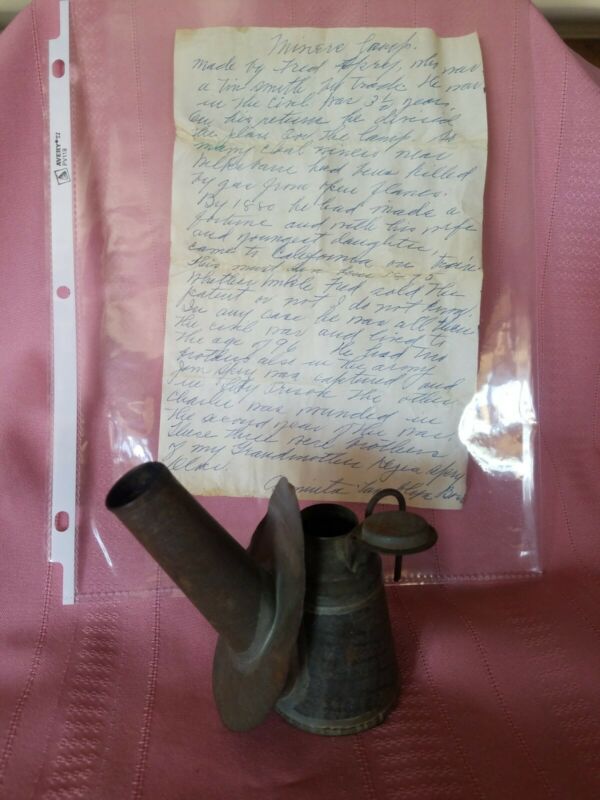 Miners Lamp.
made by Fred Spry, who was
a Tin smith by Trade. He was
in The Civil War 3½ years,
on his return he devised
the plan for the lamp. As
many coal miners near
had been killed
by gas from open flames.
By 1880 he had made a
fortune and with his wife
and youngest daughter,
came to California on train
This must have been
Whether Uncle Fred sold the
patent or not I do not know.
In any case he was all thru
the civil war and lived to
the age of 96. He had two
brothers also in the army
Jim Spry was captured and
in Prison the other
Charlie was wounded in
the second year of the war.
These three were brothers
of my Grandmother Spry
AVERY
PV119